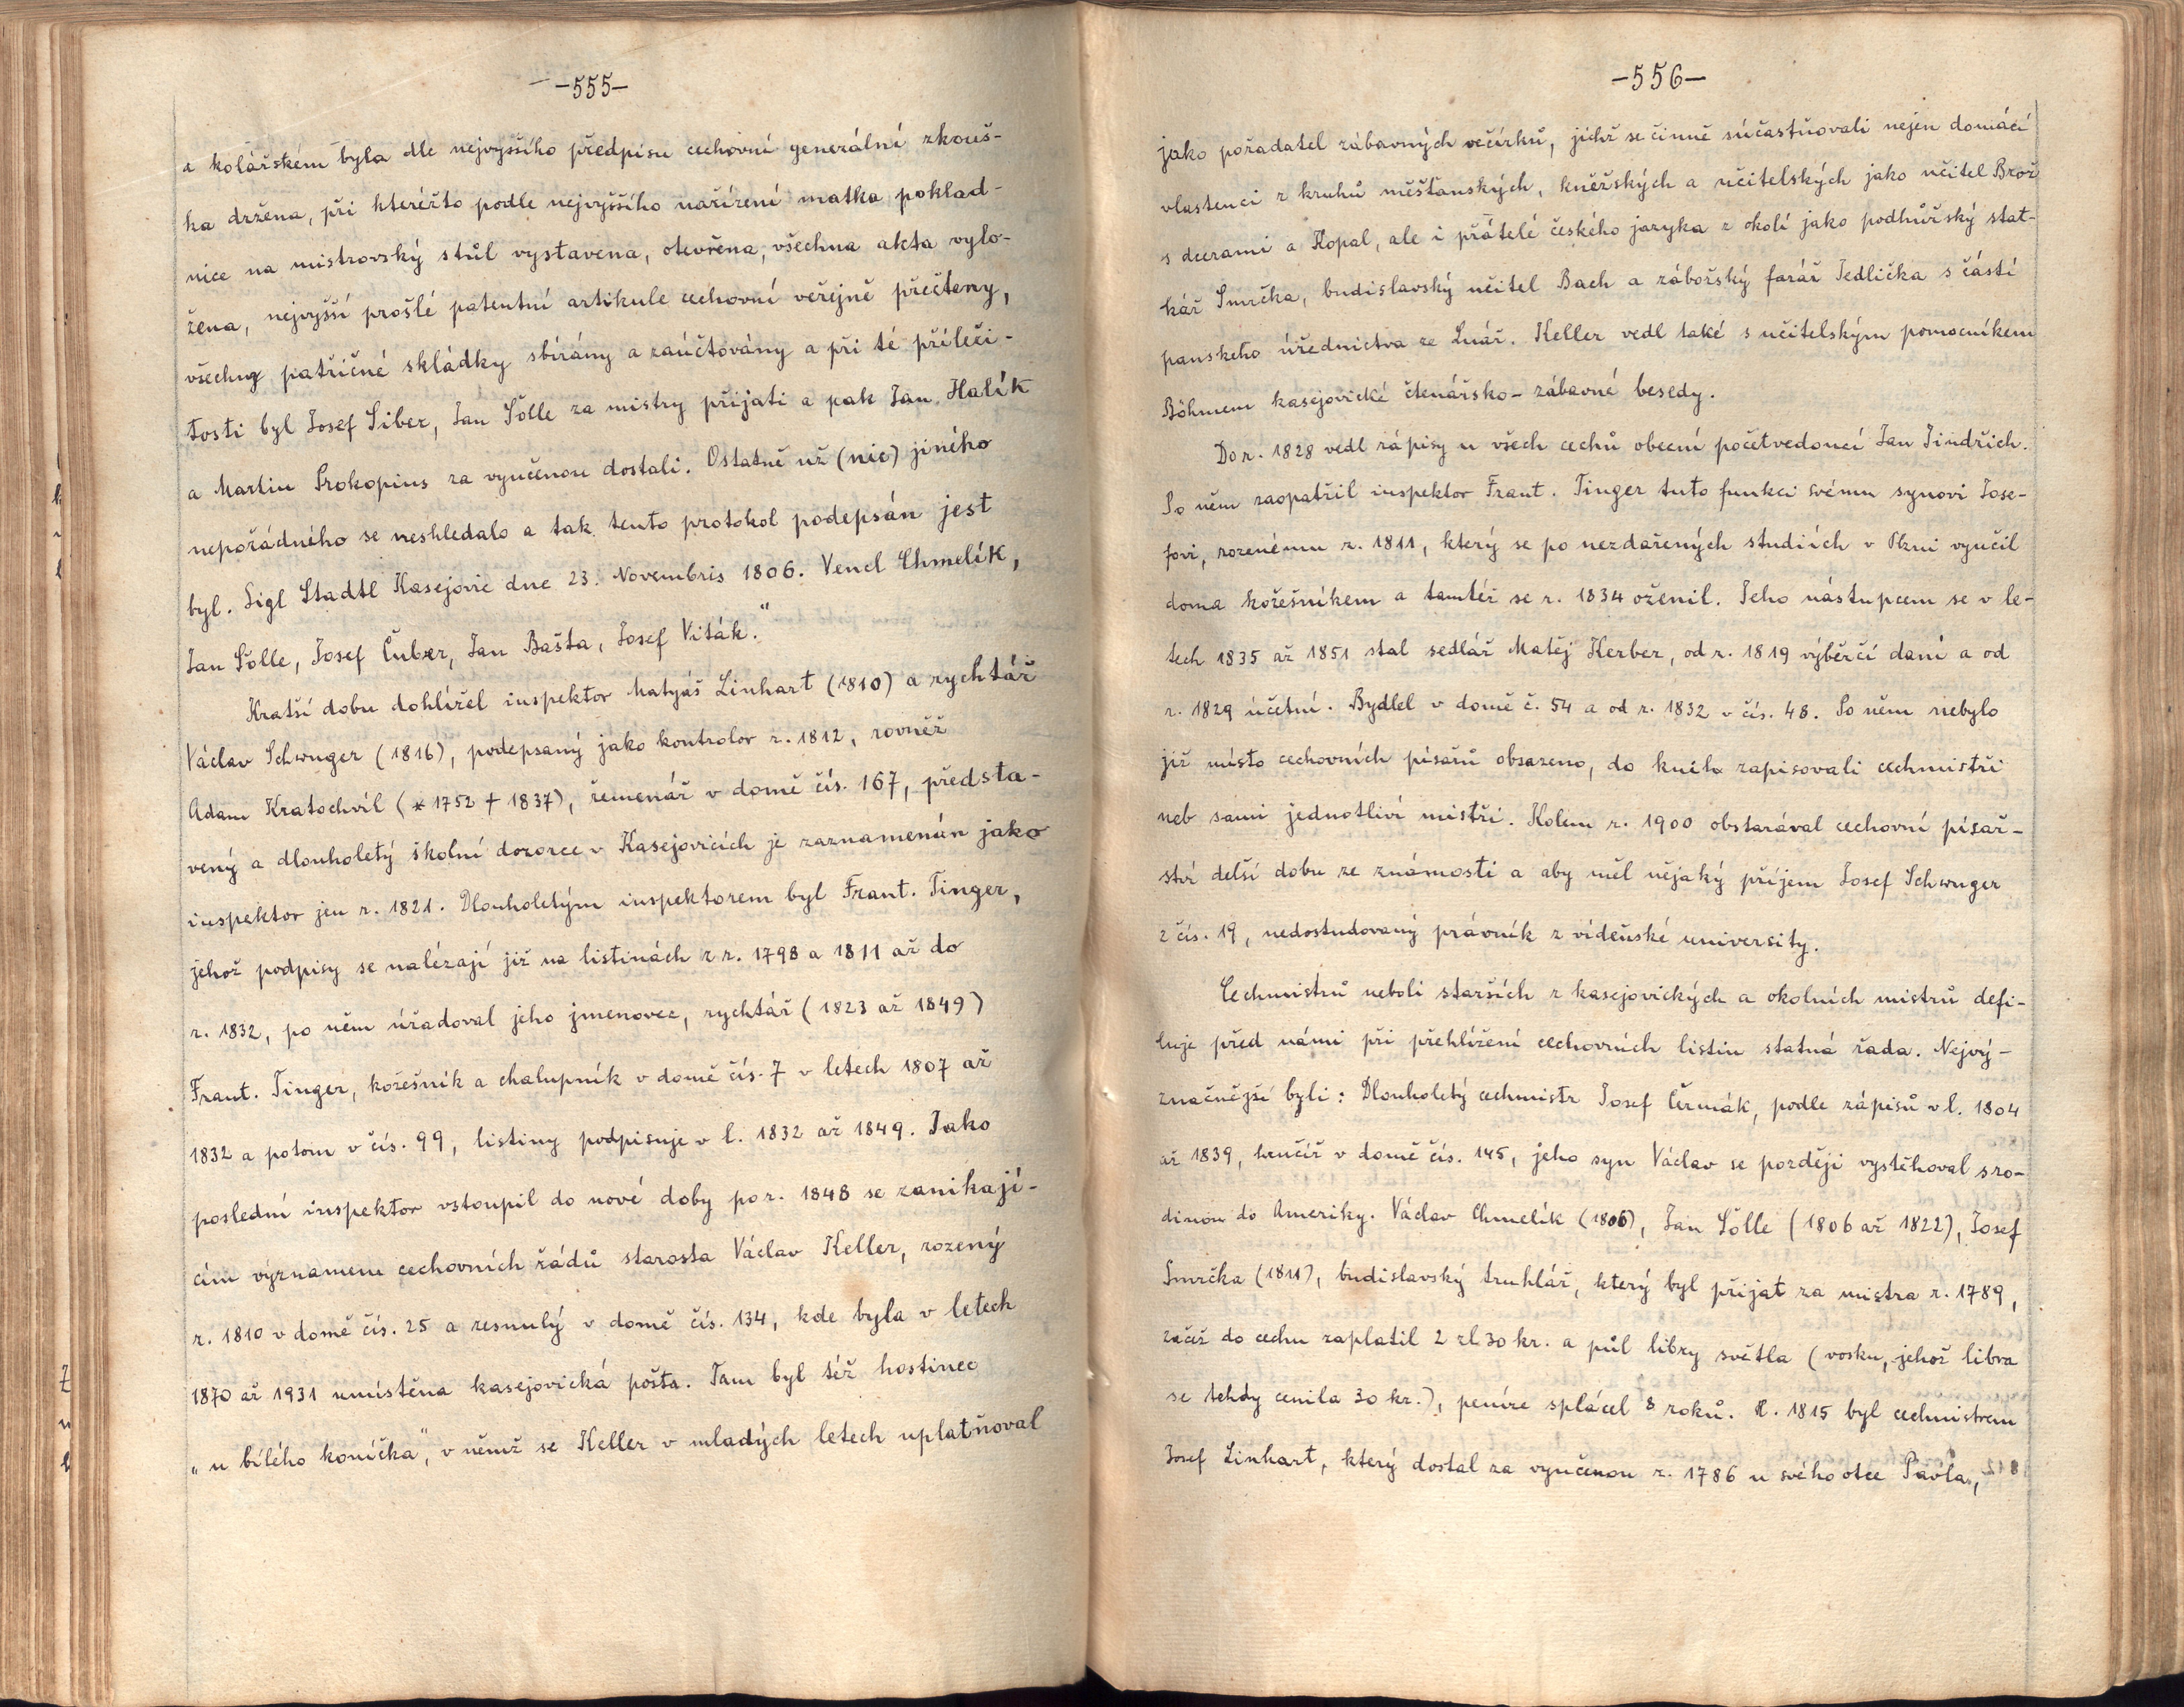 -555-
a kolářském byla dle nejvyššího předpisu cechovní generální zkouš-
ka držena, při kteréžto podle nejvyššího nařízení matka poklad-
nice na mistrovský stůl vystavena, otevřena, všechna akta vylo-
žena, nejvyšší prošlé patentní artikule cechovní veřejně přečteny,
všechny patřičné skládky sbírány a zaúčtovány a při té příleži-
tosti byl Josef Siber, Jan Šolle za mistry přijati a pak Jan Halík
a Martin Prokopius za vyučenou dostali. Ostatně už (nic) jiného
nepořádného se neshledalo a tak tento protokol podepsán jest
byl. Sigl Stadtl Kasejovic dne 23. Novembris 1806. Vencl Chmelík,
Jan Šolle, Josef Čuber, Jan Bašta, Josef Viták."
Kratší dobu dohlížel inspektor Matyáš Linhart (1810) a rychtář
Václav Schwuger (1816), podepsaný jako kontrolor r. 1812, rovněž
Adam Kratochvíl (* 1752 † 1837), řemenář v domě čís. 167, předsta-
vený a dlouholetý školní dozorce v Kasejovicích je zaznamenán jako
inspektor jen r. 1821. Dlouholetým inspektorem byl Frant. Tinger,
jehož podpisy se nalézají již na listinách z r. 1798 a 1811 až do
r. 1832, po něm úřadoval jeho jmenovec, rychtář (1823 až 1849)
Frant. Tinger, kožešník a chalupník v domě čís. 7 v letech 1807 až
1832 a potom v čís. 99, listiny podpisuje v l. 1832 až 1849. Jako
poslední inspektor vstoupil do nové doby po r. 1848 se zanikají-
cím významem cechovních řádů starosta Václav Keller, rozený
r. 1810 v domě čís. 25 a zesnulý v domě čís. 134, kde byla v letech
1870 až 1931 umístěna kasejovická pošta. Tam byl též hostinec
„u bílého koníčka", v němž se Keller v mladých letech uplatňoval
-556-
jako pořadatel zábavných večírků, jichž se činně súčastňovali nejen domácí
vlastenci z kruhů měšťanských, kněžských a učitelských jako učitel Brož
s dcerami a Kopal, ale i přátelé českého jazyka z okolí jako podhůřský stat-
kář Smrčka, budislavský učitel Bach a zábořský farář Jedlička s částí
panského úřednictva ze Lnář. Keller vedl také s učitelským pomocníkem
Böhmem kasejovické čtenářsko-zábavné besedy.
Do r. 1828 vedl zápisy u všech cechů obecní početvedoucí Jan Jindřich.
Po něm zaopatřil inspektor Frant. Tinger tuto funkci svému synovi Jose-
fovi, rozenému r. 1811, který se po nezdařených studiích v Plzni vyučil
doma kožešníkem a tamtéž se r. 1834 oženil. Jeho nástupcem se v le-
tech 1835 až 1851 stal sedlář Matěj Kerber, od r. 1819 výběrčí daní a od
r. 1829 účetní. Bydlel v domě č. 54 a od r. 1832 v čís. 48. Po něm nebylo
již místo cechovních písařů obsazeno, do knih zapisovali cechmistři
neb sami jednotliví mistři. Kolem r. 1900 obstarával cechovní písař-
ství delší dobu ze známosti a aby měl nějaký příjem Josef Schwuger
z čís. 19, nedostudovaný právník z vídeňské university.
Cechmistrů neboli starších z kasejovických a okolních mistrů defi-
luje před námi při přehlížení cechovních listin statná řada. Nejvý-
značnější byli: Dlouholetý cechmistr Josef Čermák, podle zápisů v l. 1804
až 1839, hrnčíř v domě čís. 145, jeho syn Václav se později vystěhoval s ro-
dinou do Ameriky. Václav Chmelík (1806), Jan Šolle (1806 až 1822), Josef
Smrčka (1811), budislavský truhlář, který byl přijat za mistra r. 1789,
začež do cechu zaplatil 2 zl 30 kr. a půl libry světla (vosku, jehož libra
se tehdy cenila 30 kr.), peníze splácel 8 roků. R. 1815 byl cechmistrem
Josef Linhart, který dostal za vyučenou r. 1786 u svého otce Pavla,